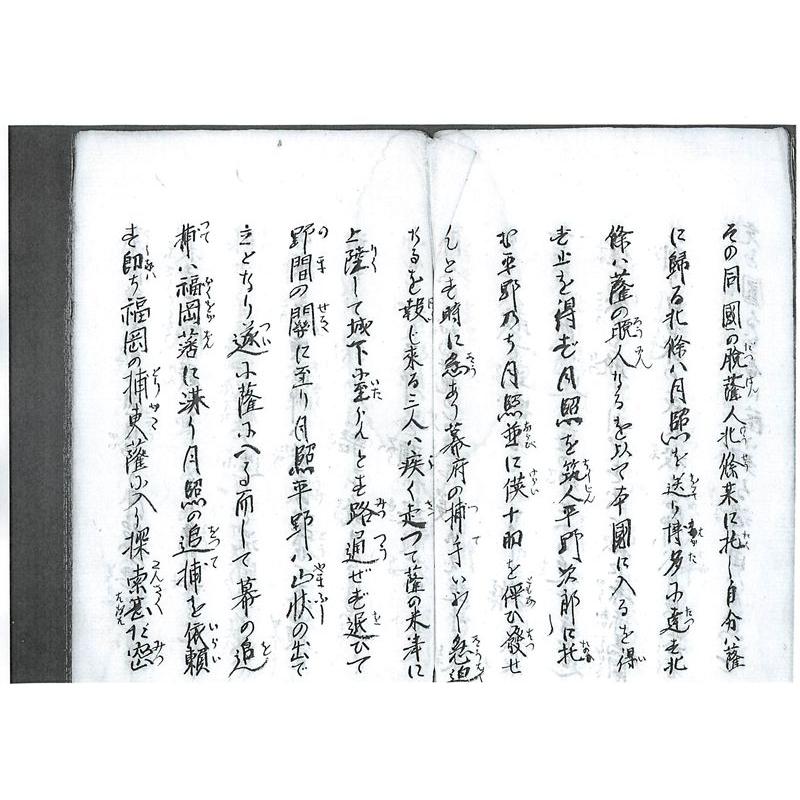 その同國の脱薩人北條某に托し自分ハ薩
に歸る北條ハ月照を送り博多に達す北
條ハ薩の脱人なるを以て本國に入るを得
ず止を得ず月照を筑人平野次郎に托
す平野乃ち月照並に僕十助を伴ひ發せ
んとす時に急あり幕府の捕手いよ〱急迫
なるを報じ来る三人ハ疾く走つて薩の米津に
上陸して城下に至らんとす路通ぜず退ひて
野間の關に至り月照平野ハ山伏の出で
立となり遂に薩に入る而して幕の追
捕ハ福岡藩に渉り月照の追捕を依頼
す即ち福岡の捕吏薩に入り探索甚だ密